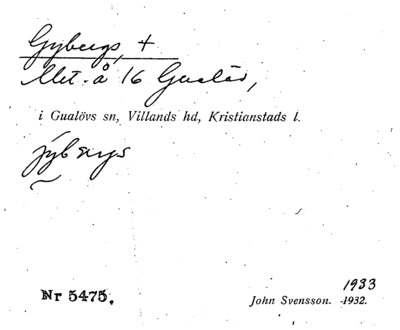 Gybergs, +
Äbet. å 16 Gualöv,
i Gualövs sn, Villands hd, Kristianstads l.
jybærgs
Nr 5475.
1933
John Svensson. -1932.